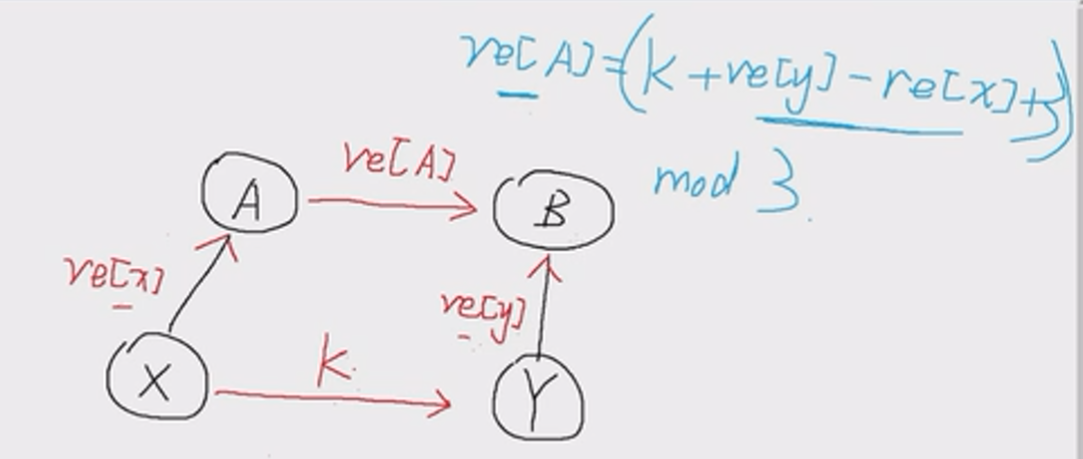 re[A]=(k+re[y]-re[x]+3)
mod 3.
re[A]
A
B
re[x]
re[y]
k.
X
Y